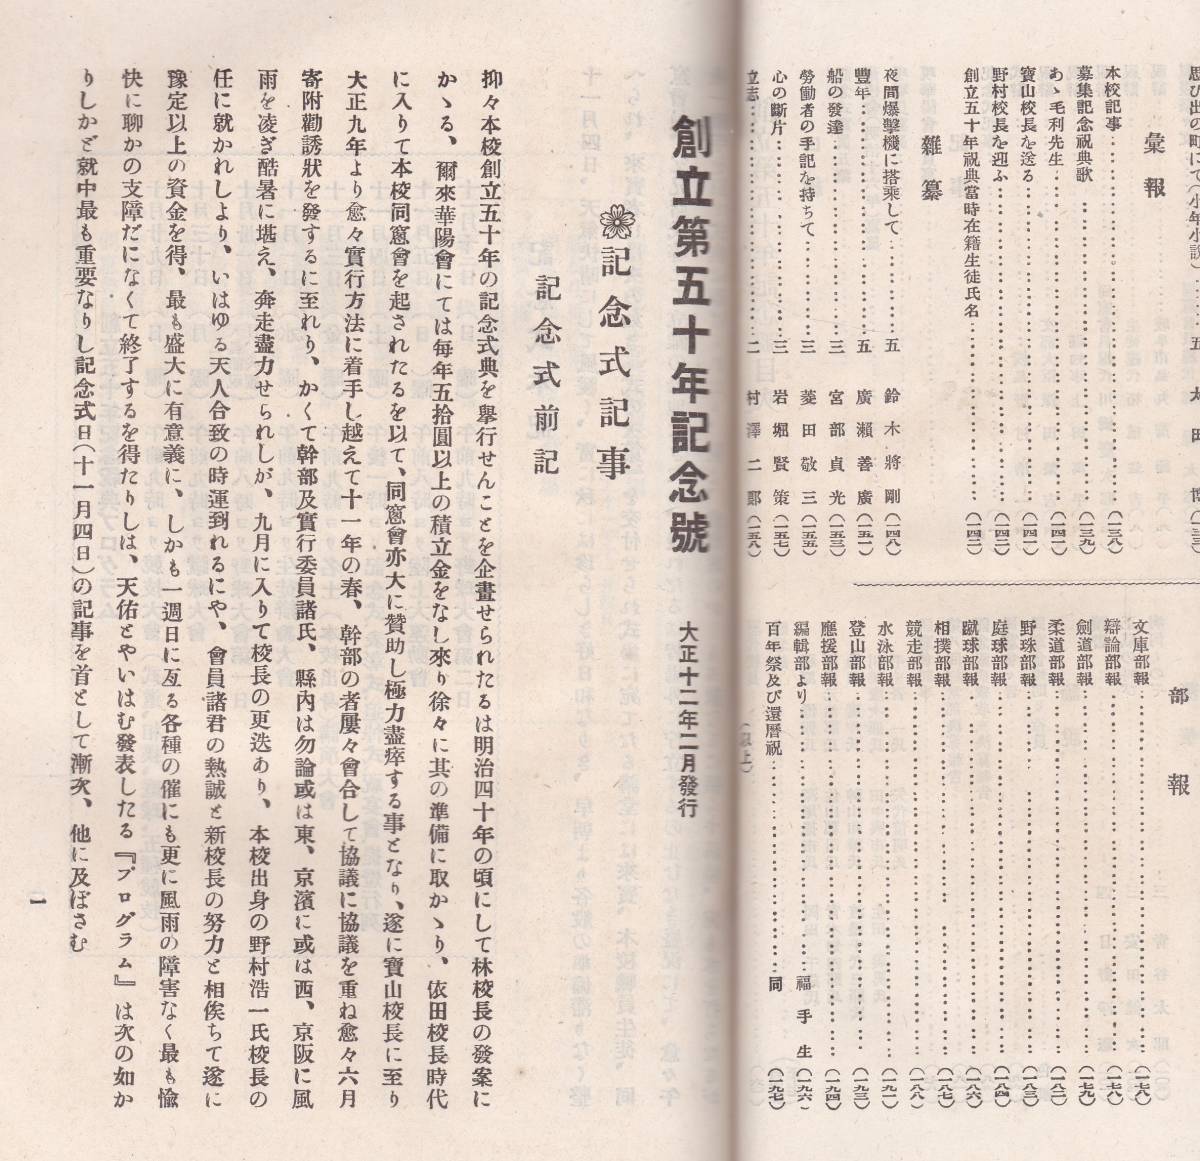 思ひ出の町にて(小年小說)………五
田
博(一三三)
彙報
本校記事………(一三八)
募集記念祝典歌………(一三九)
あゝ毛利先生………(一四一)
寶山校長を送る………(一四一)
野村校長を迎ふ………(一四二)
創立五十年祝典當時在籍生徒氏名………(一四二)
雜纂
夜間爆擊機に搭乘して………五 鈴木將剛(一四八)
豐年………五 廣瀨善廣(一五一)
船の發達………三 宮部貞光(一五三)
勞働者の手記を持ちて………三 菱田敬三(一五五)
心の斷片………三 岩堀賢策(一五七)
立志………二 村澤二郎(一五八)
部報
文庫部報………(一七八)
辯論部報………(一七八)
劍道部報………(一七九)
柔道部報………(一八二)
野球部報………(一八三)
庭球部報………(一八四)
蹴球部報………(一八六)
相撲部報………(一八七)
競走部報………(一八八)
水泳部報………(一九一)
登山部報………(一九三)
應援部報………(一九四)
編輯部より………福手生(一九六)
百年祭及び還曆祝………同(一九七)
(以上)
創立第五十年記念號 大正十二年二月發行
記念式記事
記念式前記
抑々本校創立五十年の記念式典を擧行せんことを企畫せられたるは明治四十年の頃にして林校長の發案に
かゝる、爾來華陽會にては每年五拾圓以上の積立金をなし來り徐々に其の準備に取かゝり、依田校長時代
に入りて本校同窻會を起されたるを以て、同窻會亦大に贊助し極力盡瘁する事となり、遂に寶山校長に至り
大正九年より愈々實行方法に着手し越えて十一年の春、幹部の者屢々會合して協議に協議を重ね愈々六月
寄附勸誘狀を發するに至れり、かくて幹部及實行委員諸氏、縣內は勿論或は東、京濱に或は西、京阪に風
雨を凌ぎ酷暑に堪え、奔走盡力せられしが、九月に入りて校長の更迭あり、本校出身の野村浩一氏校長の
任に就かれしより、いはゆる天人合致の時運到れるにや、會員諸君の熱誠と新校長の努力と相俟ちて遂に
豫定以上の資金を得、最も盛大に有意義に、しかも一週日に亙る各種の催にも更に風雨の障害なく最も愉
快に聊かの支障だになくて終了するを得たりしは、天佑とやいはむ發表したる『プログラム』は次の如か
りしかど就中最も重要なりし記念式日(十一月四日)の記事を首として漸次、他に及ばさむ
一